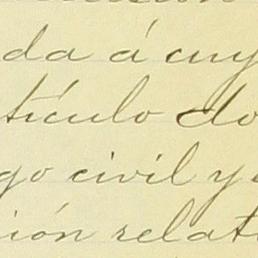 da á cuy
tículo do
go civil y
ión relat